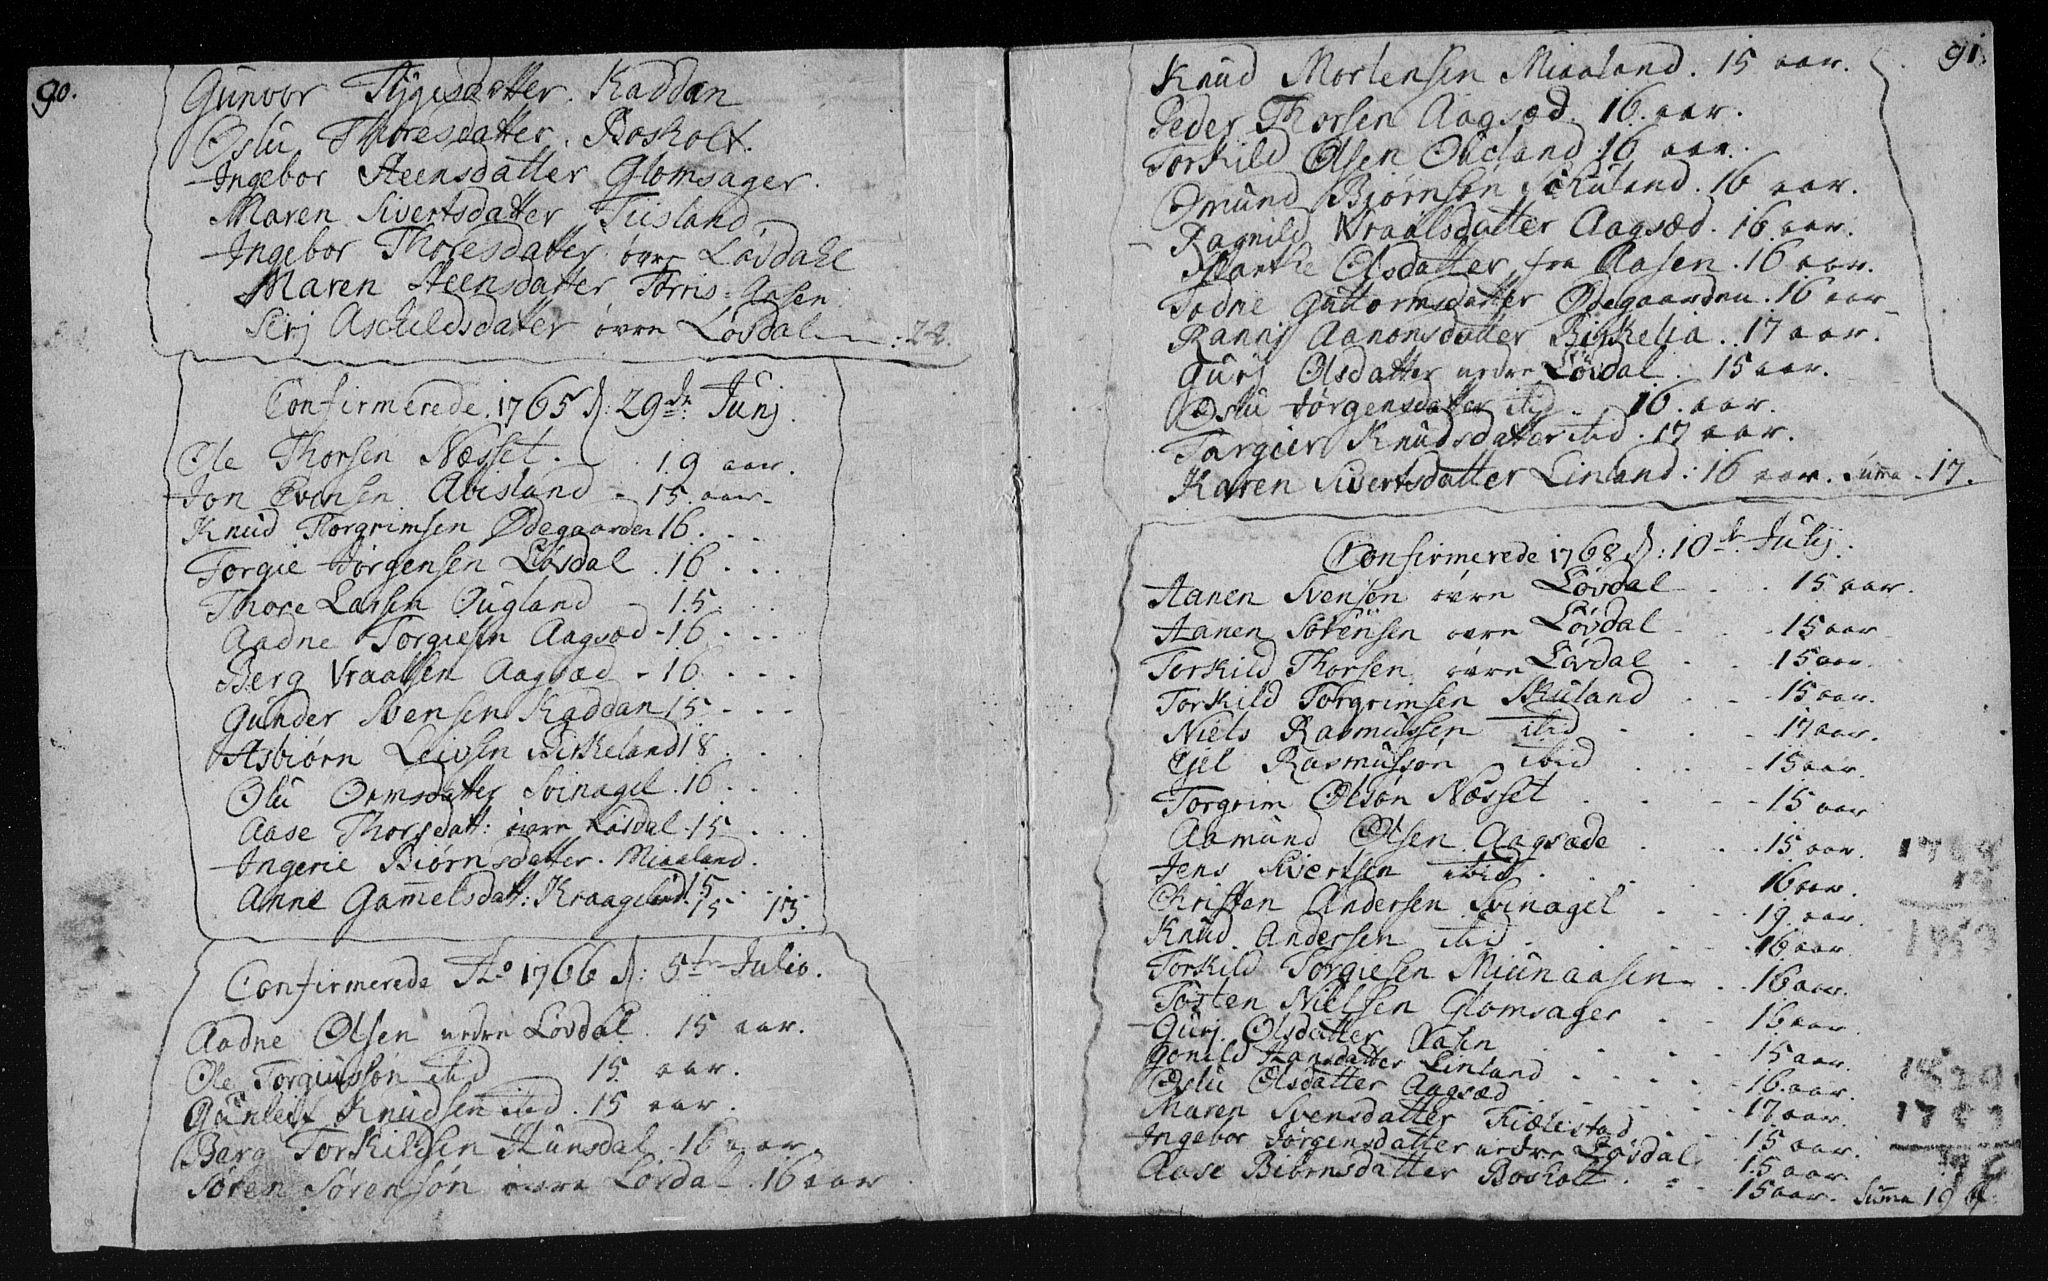 90.
Gunvor Tygesdatter. Kaddan
Oslu Thoresdatter. Bosholt.
Ingebor Steensdatter Glomsager.
Maren Sivertsdatter Tiisland
Ingebor Thoresdatter øvre Løvdahl
Maren Steensdatter Tørris=Aasen
Seri Aschildsdatter øvre Løvdal : 22.
Confirmerede 1765 d: 29de Junj.
Ole Thorsen Næsset. 19 aar.
Jon Evensen Abesland - 15 aar-
Knud Thorgrimsen Ødegaarden 16. . . .
Torgie Jørgensen Løvdal . 16 . . .
Thore Larsen Bugland - 15 . . .
Aadne Torgiesen Aagsæd - 16 . . .
Berg Vraalsen Aagsæd - 16 . . . .
Gunder Svensen Kaddan 15 - - -
Asbiørn Leivsen Birkeland 18 . . .
Olu Ormsdatter Svinagel . 16 . . .
Aase Thorsdatt: øvre Løvdal - 15 . . .
Ingerie Biørnsdatter. Miaaland. 15
Anne Gam̄elsdatt: Kraageland 15 - - 13.
Confirmerede Ao 1766 d: 5te Julio.
Aadne Olsen nedre Løvdal. 15 aar.
Ole Torgiussøn ibid 15 aar.
Gunleif Knudsen ibid. 15 aar.
Berg Torkildsen Hunsdal - 16 aar
Søren Sørensøn øvre Løvdal - 16 aar
91.
Knud Mortensen Miaaland. 15 aar.
Peder Thorsen Aagsæd. 16. aar.
Torkild Olsen 16 aar.
Omund Biørnsen Skuland. 16 aar.
Ragnild Vraalsdatter Aagsæd. 16. aar.
Marthe Olsdatter fra Aasen. 16 aar.
Todne Guttormsdatter Ødegaarden. 16 aar
Ranni Aanonsdatter Birkelia. 17 aar.
Guri Olsdatter nedre Løvdal. 15 aar.
Oslu Jørgensdatter ibid. 16. aar.
Torgier Knudsdatter ibid. 17 aar.
Karen Sivertsdatter Linland : 16 aar. Sum̄a . 17.
Confirmerede 1768 d: 10de Julij.
Aanen Svensøn øvre Løvdal - . . 15 aar.
Aanen Sørensen øvre Løvdal - . . 15 aar
Torkild Thorsen øvre Løvdal - . . 15 aar.
Torkild Torgrimsen Skuland . - 15 aar.
Niels Rasmussen ibid . . - 17 aar.
Ejel Rasmussøn ibid . . - 15 aar.
Torgrim Olsøn Næsset . . - 15 aar
Aamund Olsen Aagsæde . . . 15 aar.
Jens Sivertsen ibid . . . 16 aar.
Christen Andersen Svinagel . . . 19. aar
Knud Andersen ibid . . . 16 aar
Torkild Torgiesen Miunaasen . . 16 aar.
Tosten Nielsen Glomsager . . 16 aar.
Gurj Olsdatter Aasen . . . 15 aar.
Gonild Hansdatter Linland . . . 16. aar.
Oslu Olsdatter Aagsæd . . . 17 aar.
Maren Svensdatter Kielestad . . 15 aar.
Ingebor Jørgensdatter nedre Løvdal 15 aar.
Aase Biørnsdatter Bosholt . . . 15 aar. Sum̄a 19